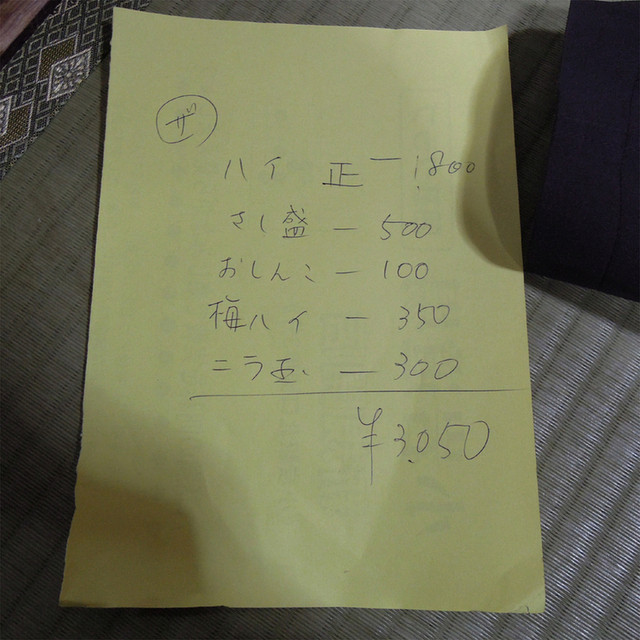 ザ
ハイ 正 ー 1.800
さし盛 ー 500
おしんこ ー 100
梅ハイ ー 350
ニラ玉 ー 300
¥3.050